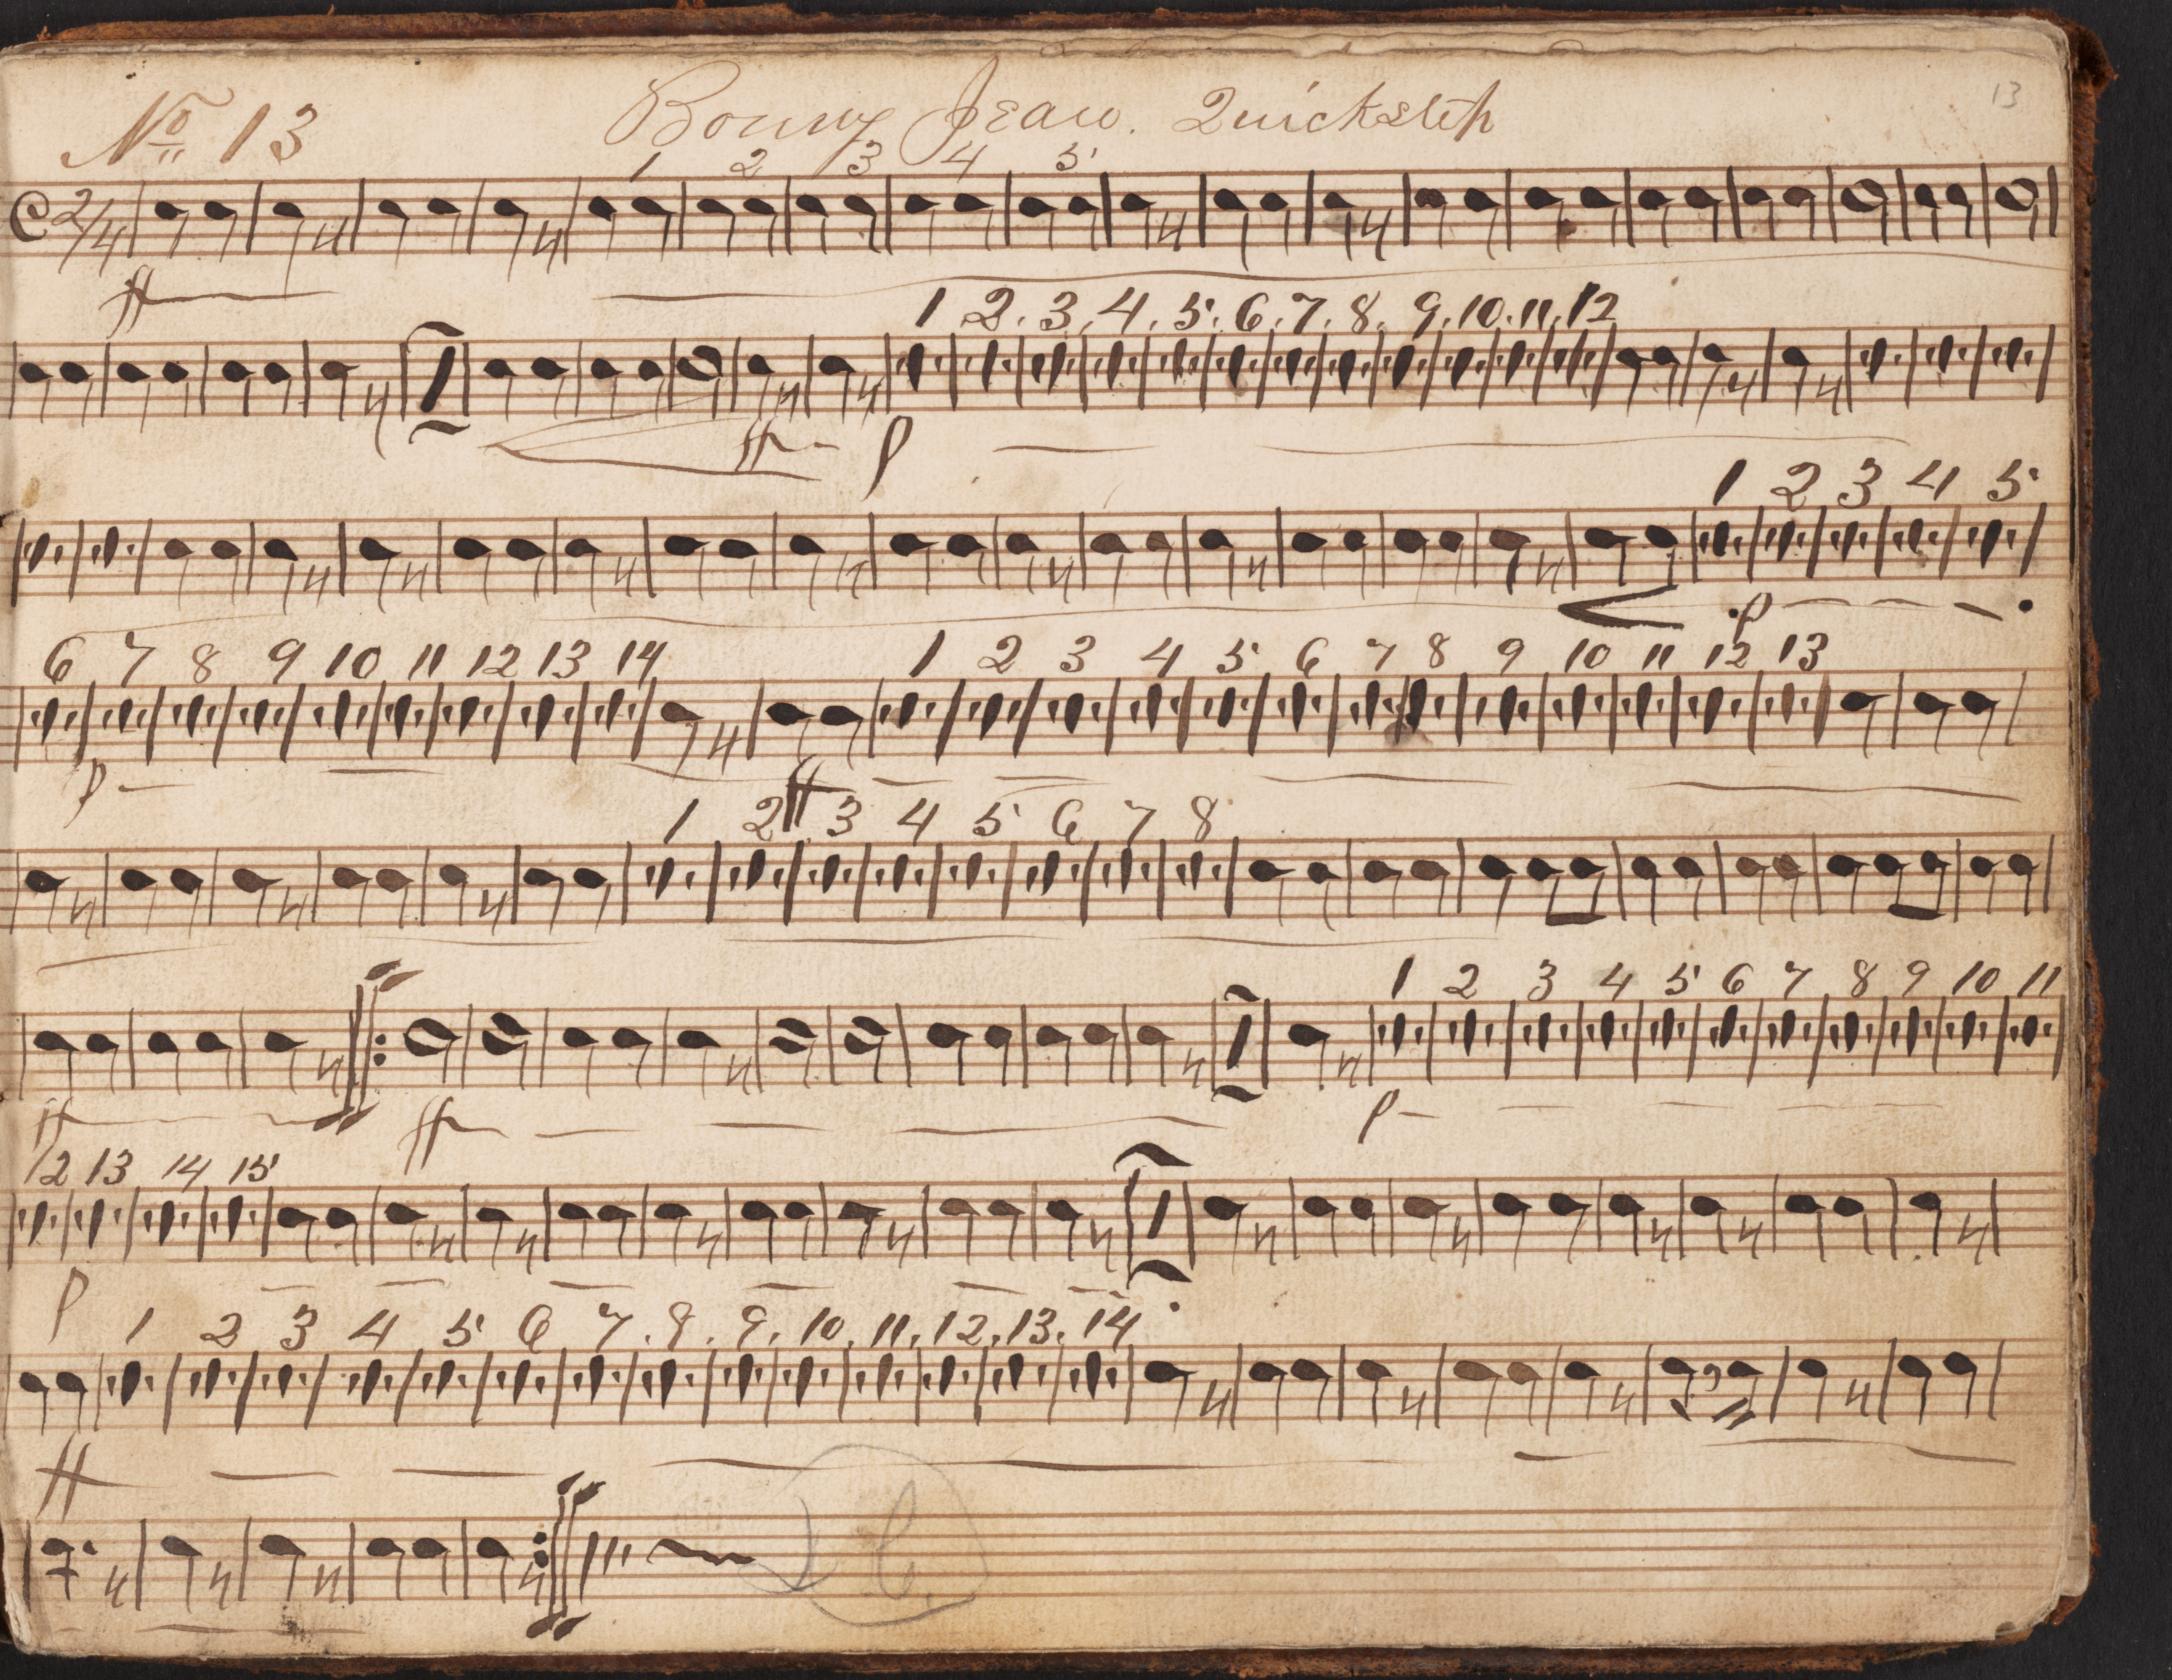 13
No 13 Bonny Jean. Quickstep
1 2 3 4 5
C 2/4
ff
1 2. 3. 4. 5. 6. 7. 8. 9. 10. 11. 12
ff p
1 2 3 4 5
p
6 7 8 9 10 11 12 13 14 1 2 3 4 5 6 7 8 9 10 11 12 13
p ff
1 2 3 4 5 6 7 8
1 2 3 4 5 6 7 8 9 10 11
ff ff p
12 13 14 15
p
1 2 3 4 5 6 7. 8. 9. 10. 11. 12. 13. 14
ff